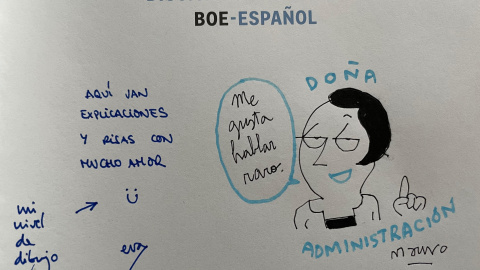 BOE-ESPAÑOL
AQUÍ VAN
EXPLICACIONES
Y RISAS CON
MUCHO AMOR
mi
nivel
de
dibujo
eva
Me
gusta
hablar
raro.
DOÑA
ADMINISTRACIÓN